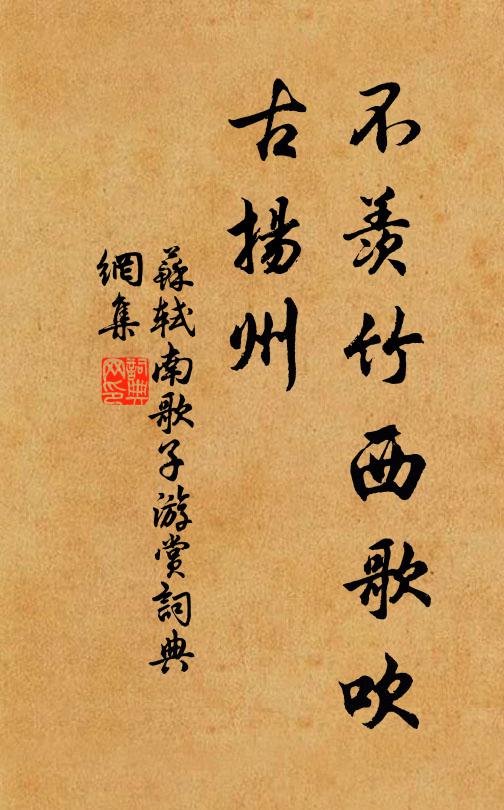 不羨竹西歌吹
古揚州
蘇軾南歌子游賞詞典
網集
詞典
网印